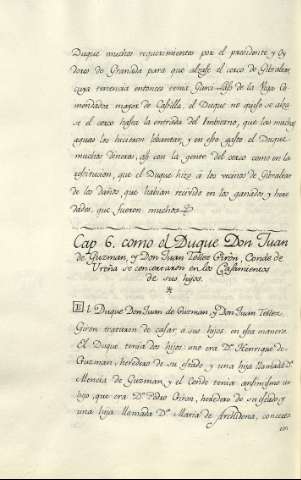 Duque muchos requerimientos por el presidente, y Oy
dores de Granada para que alzase el cerco de Gibraltar,
cuya tenencia entonces tenia Garci-Laso de la Vega Co
mendador mayor de Castilla. el Duque no quiso se alza
se el cerco hasta la entrada del Imbierno, que las muchas
aguas los hicieron lebantar, y en esto gastó el Duque
muchos dineros, asi con la gente del cerco como en la
restitucion, que el Duque hizo á los vecinos de Gibraltar
de los daños, que habian recivido en los ganados, y here
dades, que fueron muchos.
Cap 6. como el Duque Don Juan
de Guzman, y Don Juan Tellez Giron, Conde de
Ureña se concertaron en los Casamientos
de sus hijos.
El Duque Don Juan de Guzman, y Don Juan Tellez
Giron trataron de casar á sus hijos en esta manera.
El Duque tenia dos hijos: uno era Dn. Henrique de
Guzman, heredero de su estado, y una hija llamada Da.
Mencia de Guzman, y el Conde tenia asimismo un
hijo, que era Dn. Pedro Giron, heredero de su estado, y
una hija llamada Da. Maria de Archidona, concerta
ron